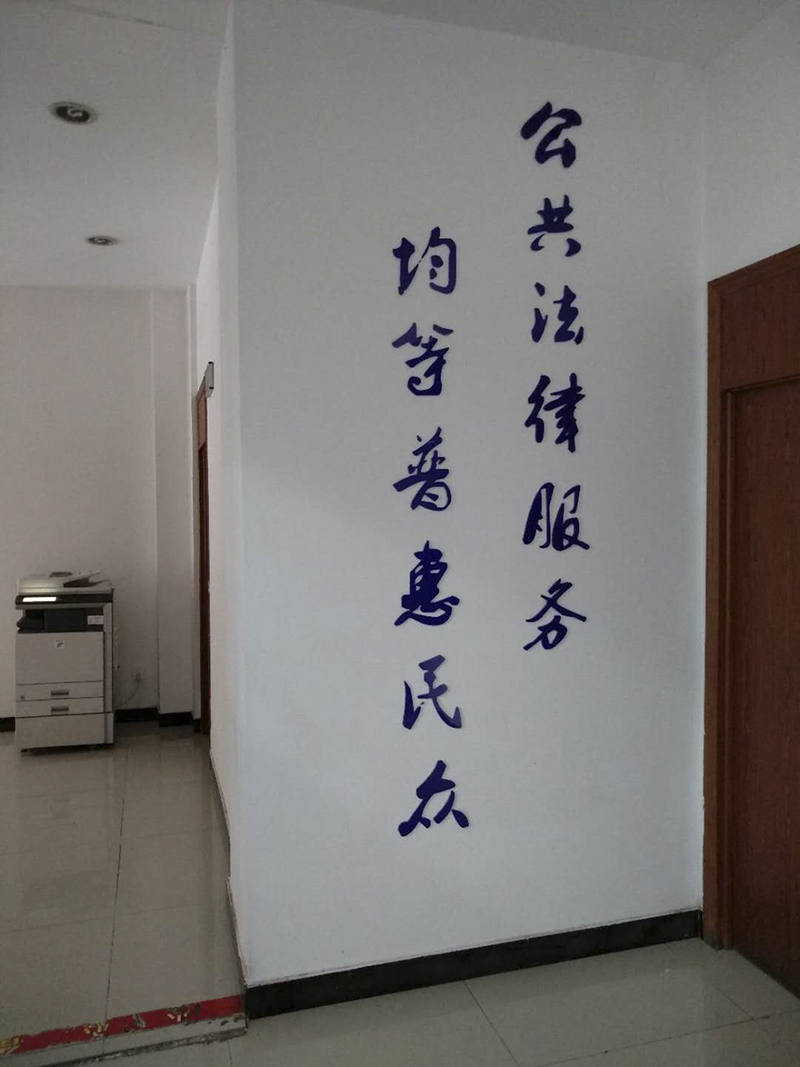 公共法律服务
均等普惠民众